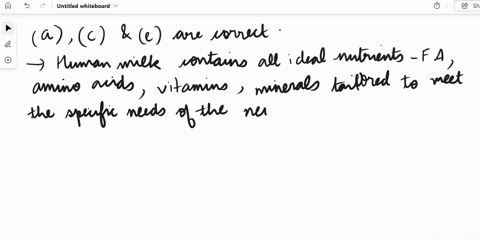 Untitled whiteboard
Share
(a), (c) & (e) are correct.
→ Human milk contains all ideal nutrients - FA,
amino acids, vitamins, minerals tailored to meet
the specific needs of the ne